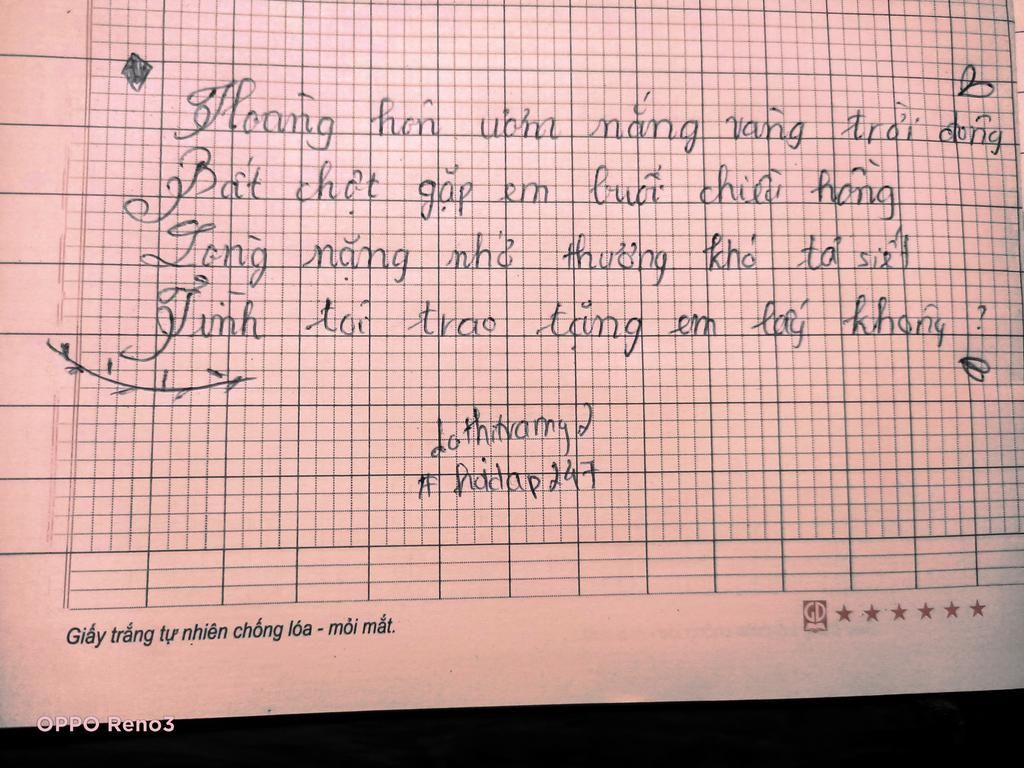 2
Hoàng hôn ươm nắng vàng trời đông
Bất chợt gặp em buổi chiều hồng
Tong nặng nhớ thương khó tả siết
Tình tôi trao tặng em lấy không ?
dothitramy2
# hoidap247
Giấy trắng tự nhiên chống lóa - mỏi mắt.
GD
OPPO Reno3